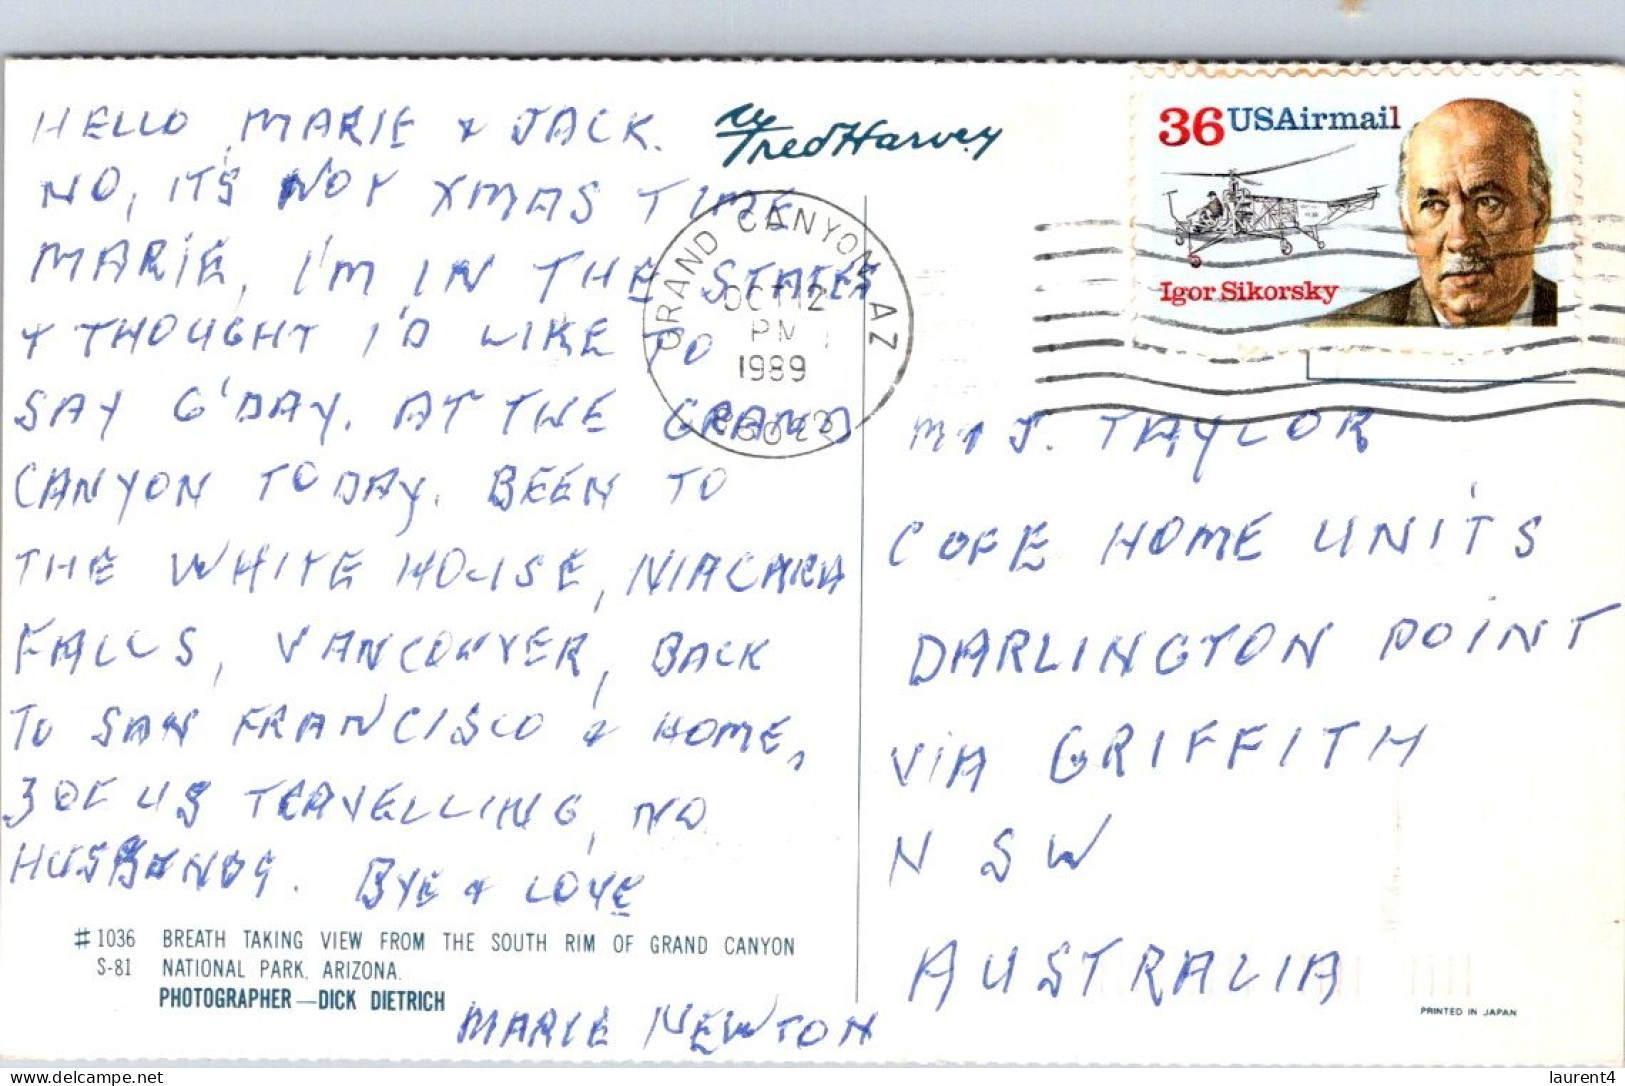 HELLO MARIE & JACK.
NO, IT'S NOT XMAS TIME
MARIE, I'M IN THE STATES
& THOUGHT I'D LIKE TO
SAY G'DAY. AT THE GRAND
CANYON TODAY. BEEN TO
THE WHITE HOUSE, NIAGARA
FALLS, VANCOUVER, BACK
TO SAN FRANCISCO & HOME,
3 OF US TRAVELLING, NO
HUSBANDS. BYE & LOVE
MARIE NEWTON
#1036 BREATH TAKING VIEW FROM THE SOUTH RIM OF GRAND CANYON
S-81 NATIONAL PARK, ARIZONA.
PHOTOGRAPHER—DICK DIETRICH
Fred Harvey
GRAND CANYON AZ
OCT 12
PM
1989
86023
36 USAirmail
Igor Sikorsky
J. TAYLOR
HOME UNITS
DARLINGTON POINT
VIA GRIFFITH
NSW
AUSTRALIA
PRINTED IN JAPAN
delcampe.net
laurent4